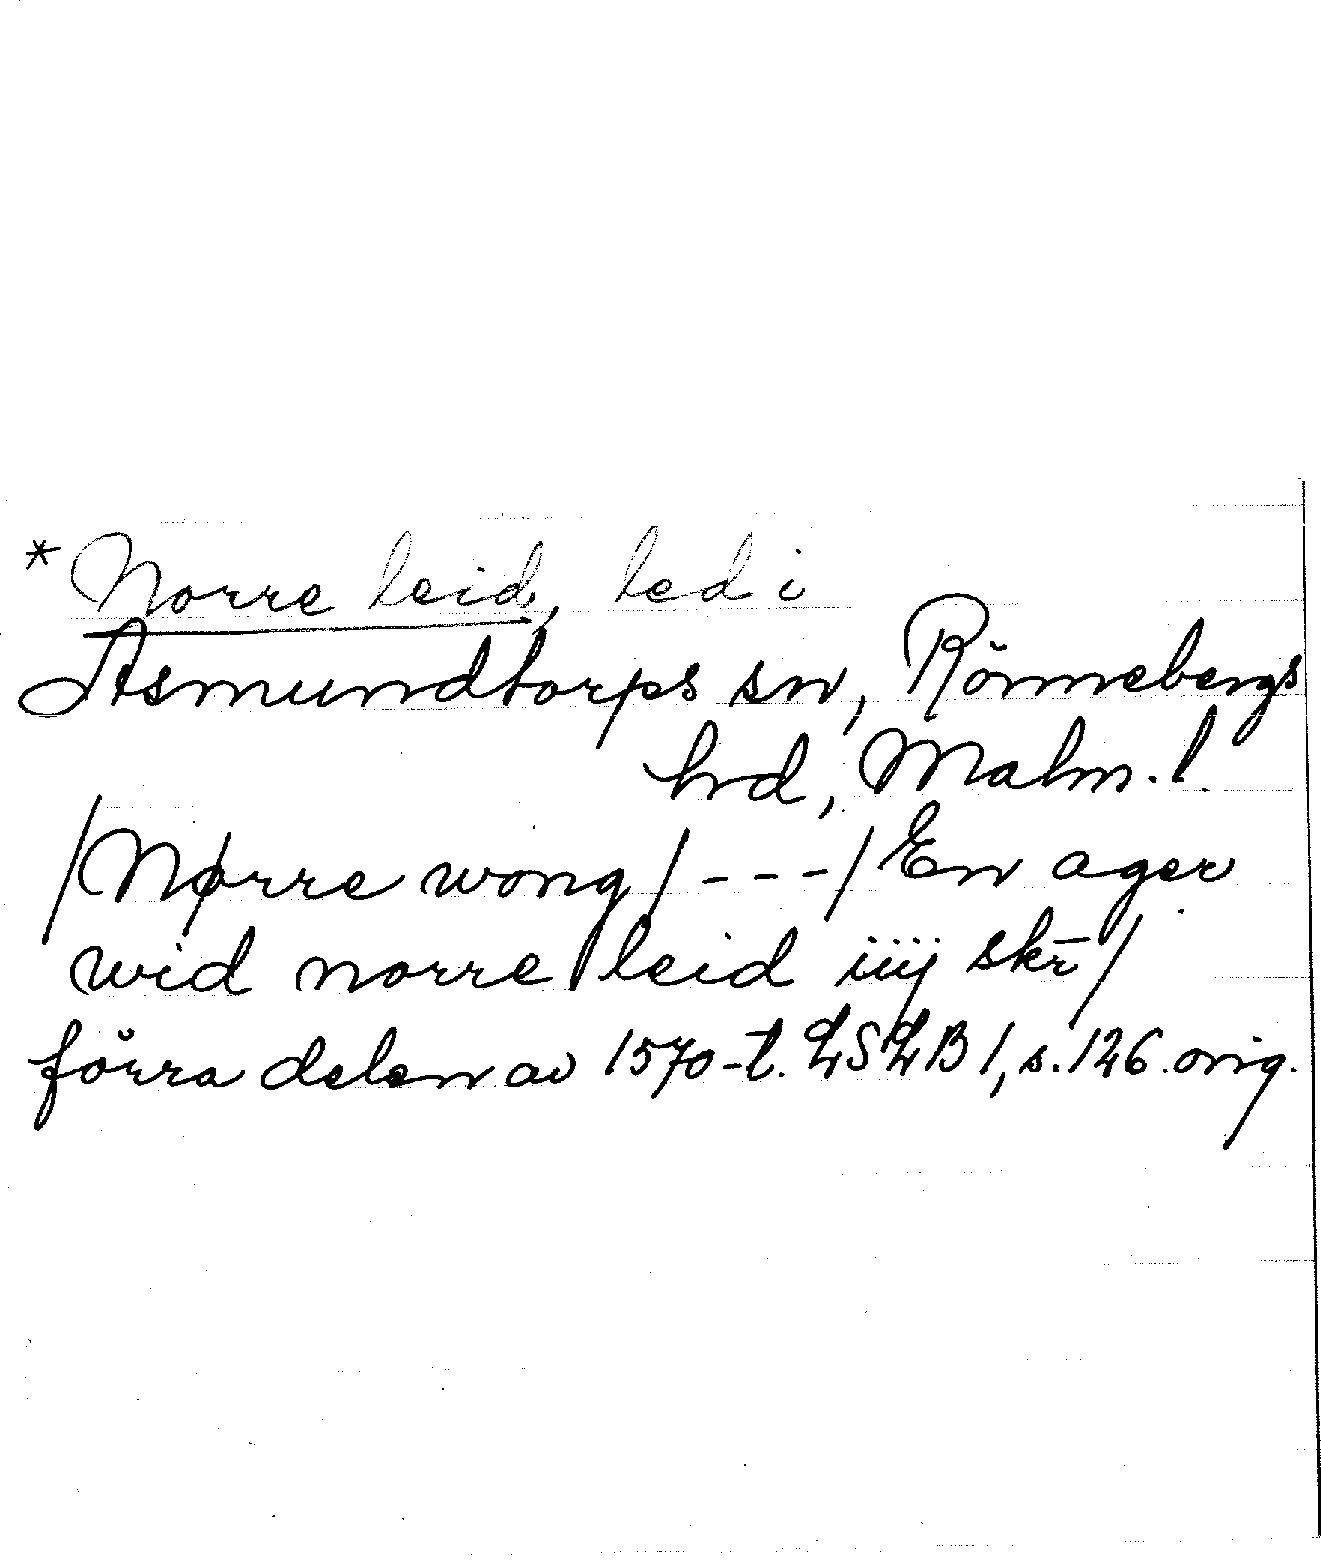 * Norre leid, led i
Asmundtorps sn, Rönnebergs
hrd, Malm. l.
/Nørre wong/ - - -/ En ager
wid norre leid iiij skr̄/
förra delen av 1570-t. LSLB 1, s. 126 orig.